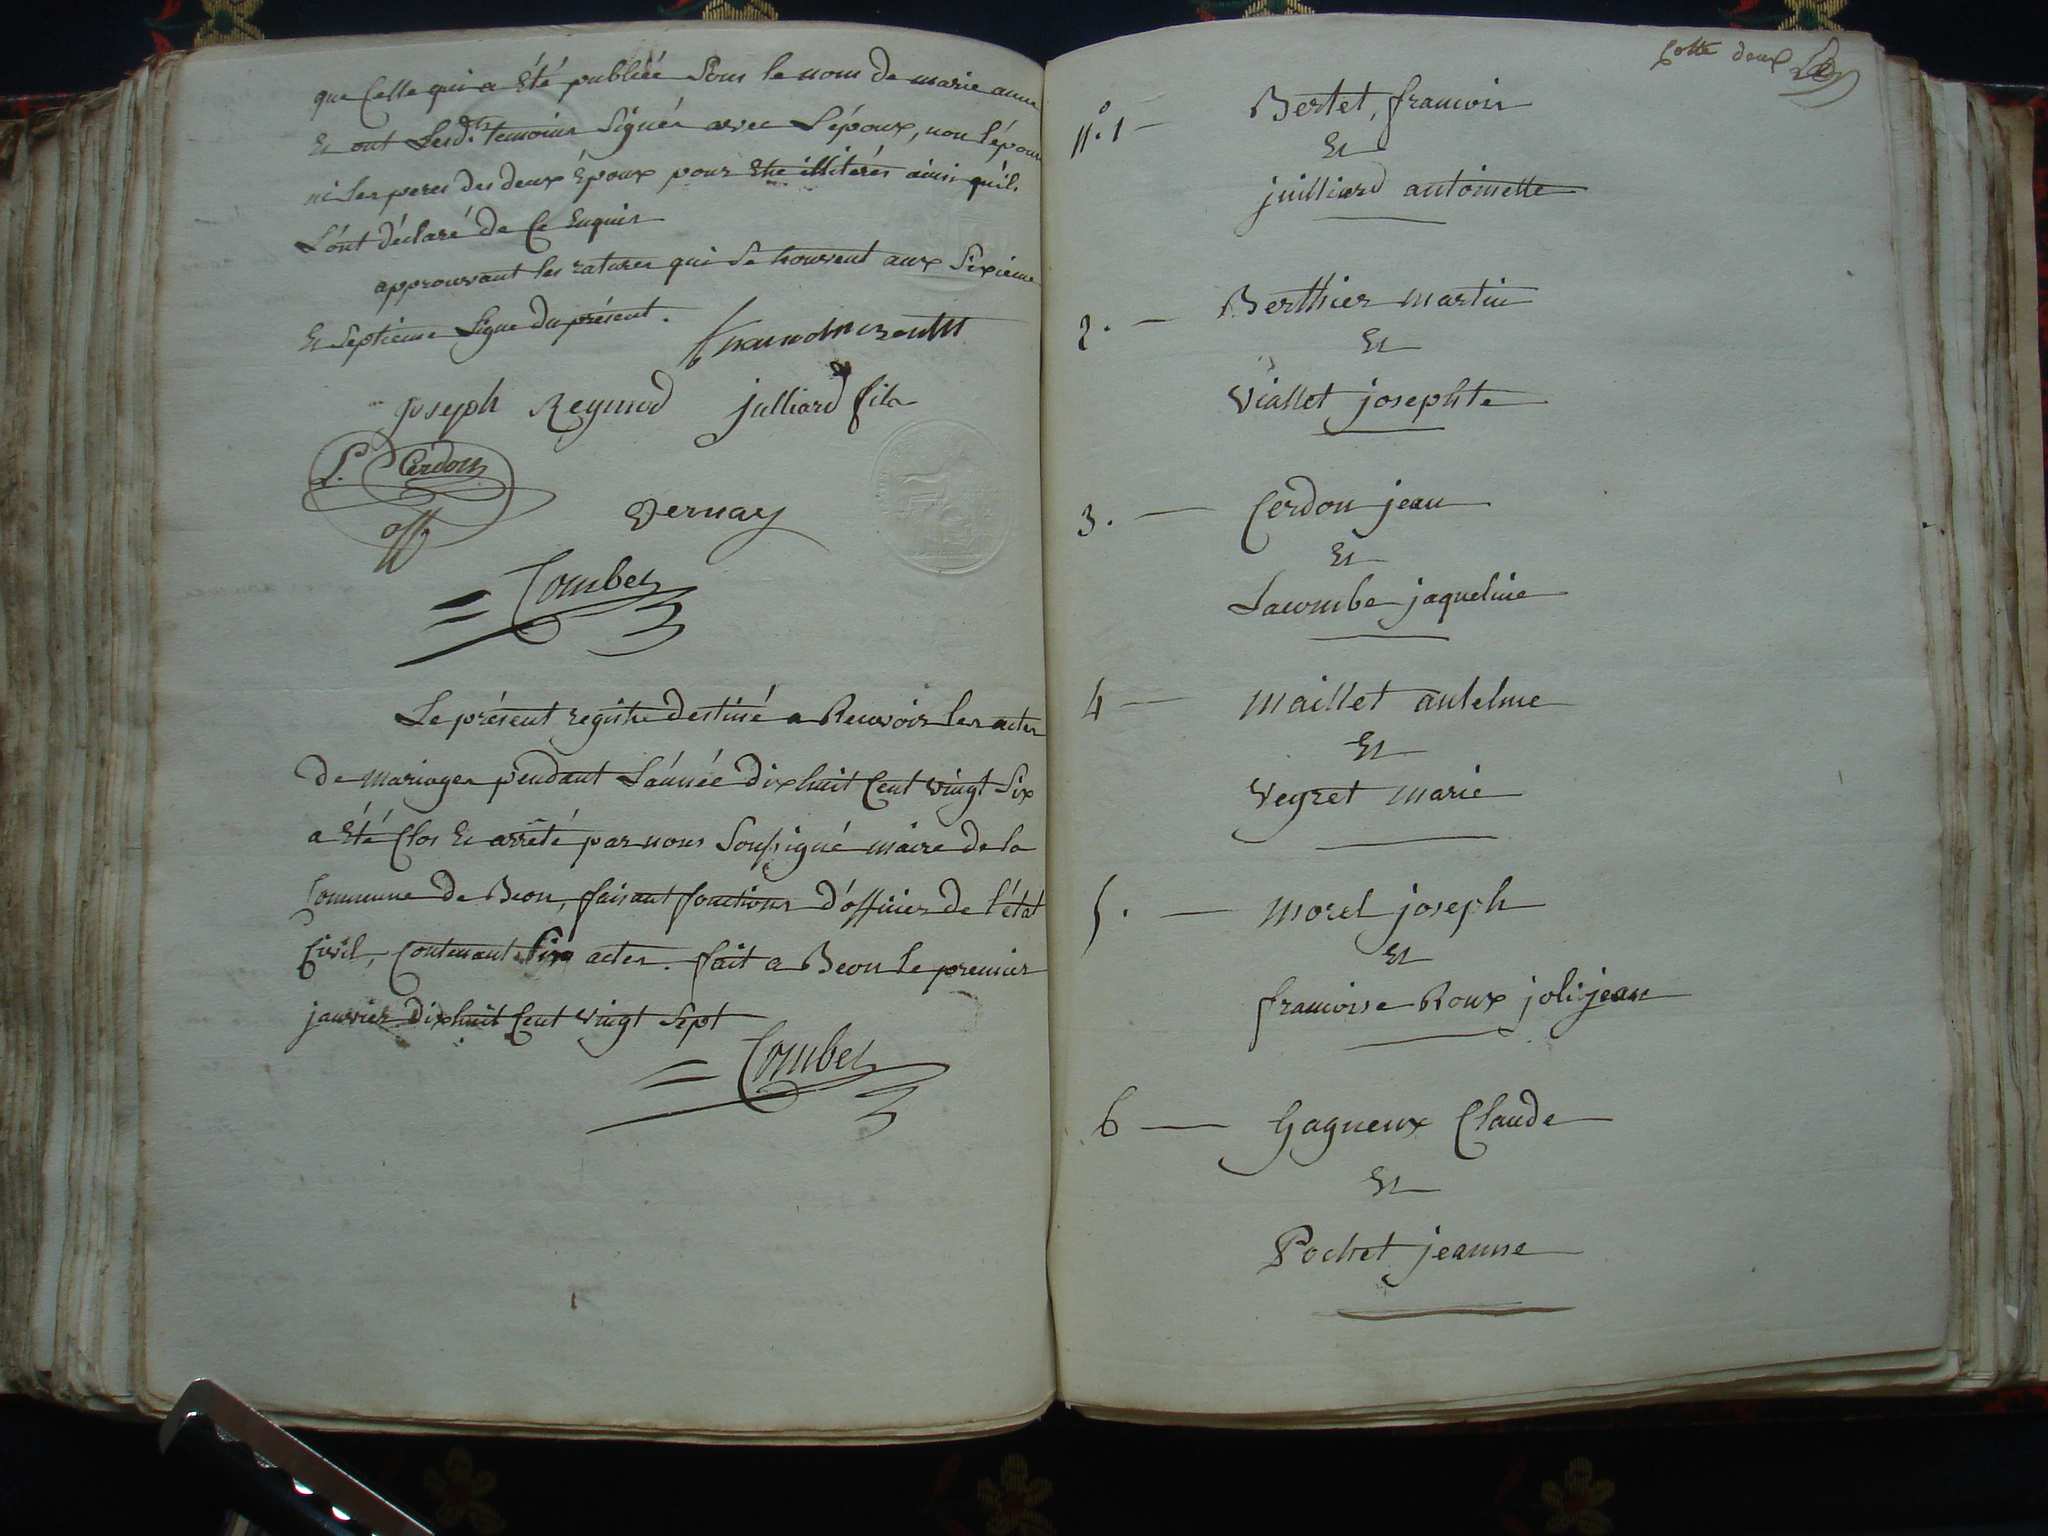 que Celle qui a été publiée Sous le nom de marie anne
Et ont Lesd.ts temoins Signés avec L'époux, non l'épouse
ni les peres des deux Époux pour Etre illiterés ainsi qu'ils
L'ont déclaré de Ce Enquis
approuvant les ratures qui Se trouvent aux Sixieme
Et Septieme Ligne du présent.
Joseph Reymond julliard fils
P. Cerdon
off
Vernay
= Combet
Le présent registre destiné a Recevoir les actes
de mariages pendant L'année dix huit Cent vingt Six
a Eté Clos Et arrêté par nous Soussigné maire de la
Commune de Beon, faisant fonctions d'officier de l'état
Civil, Contenant Six actes. fait a Beon le premier
janvier dix huit Cent vingt Sept
= Combet
Cotte deux
n.o 1 — Bertet, francois
Et
juilliard antoinette
2. — Berthier martin
Et
Viallet josephte
3. — Cerdon jean
Et
Lacombe jaqueline
4 — Maillet antelme
Et
Veyret marie
5. — Morel joseph
Et
francoise Roux jolijean
6 — Gagneux Claude
Et
Pochet jeanne